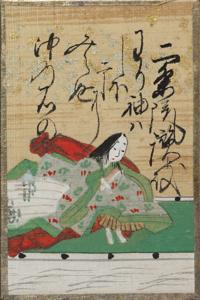 二条院讃岐
わか袖は
しほ
ひに
みえぬ
沖の石の